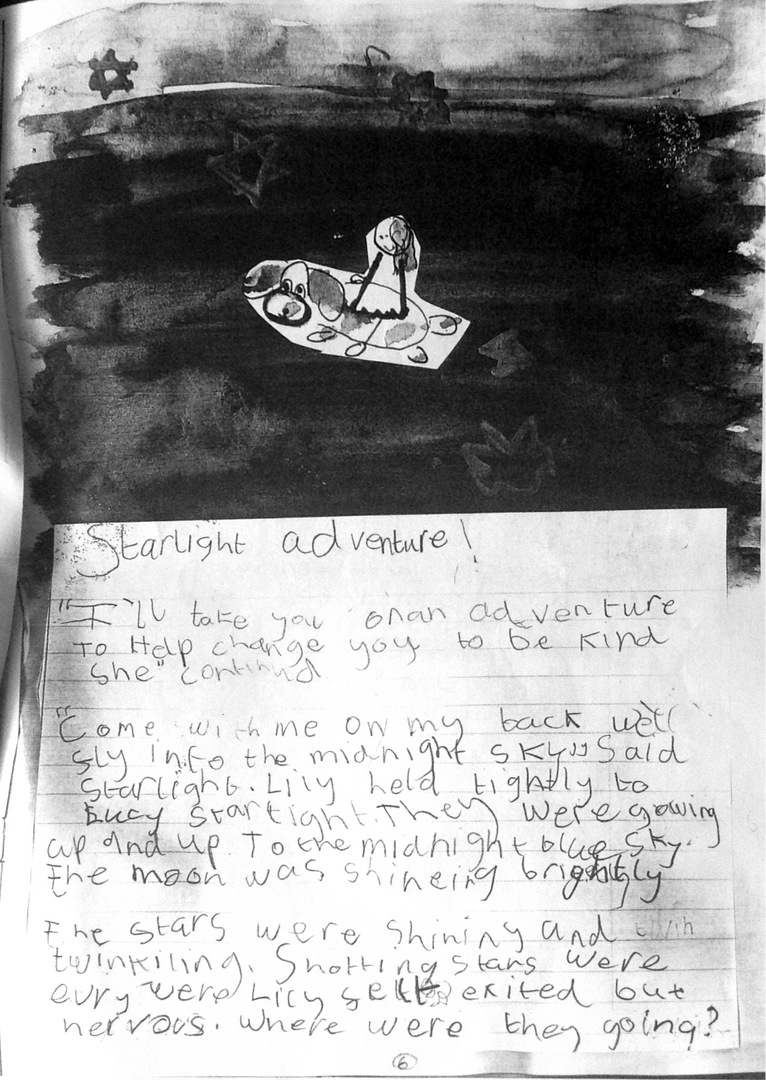 Starlight adventure!
"I'll take you on an adventure
to Help change you to be kind
she" continud
"Come with me on my back we'll
fly into the midnight sky" Said
Starlight. Lily held tightly to
starlight. They were gowing
up and up To the midnight blue sky.
The moon was shineing brightly
The stars were shining and
twinkiling. Shotting stars were
evry were Lily felt exited but
nervous. Where were they going?
6